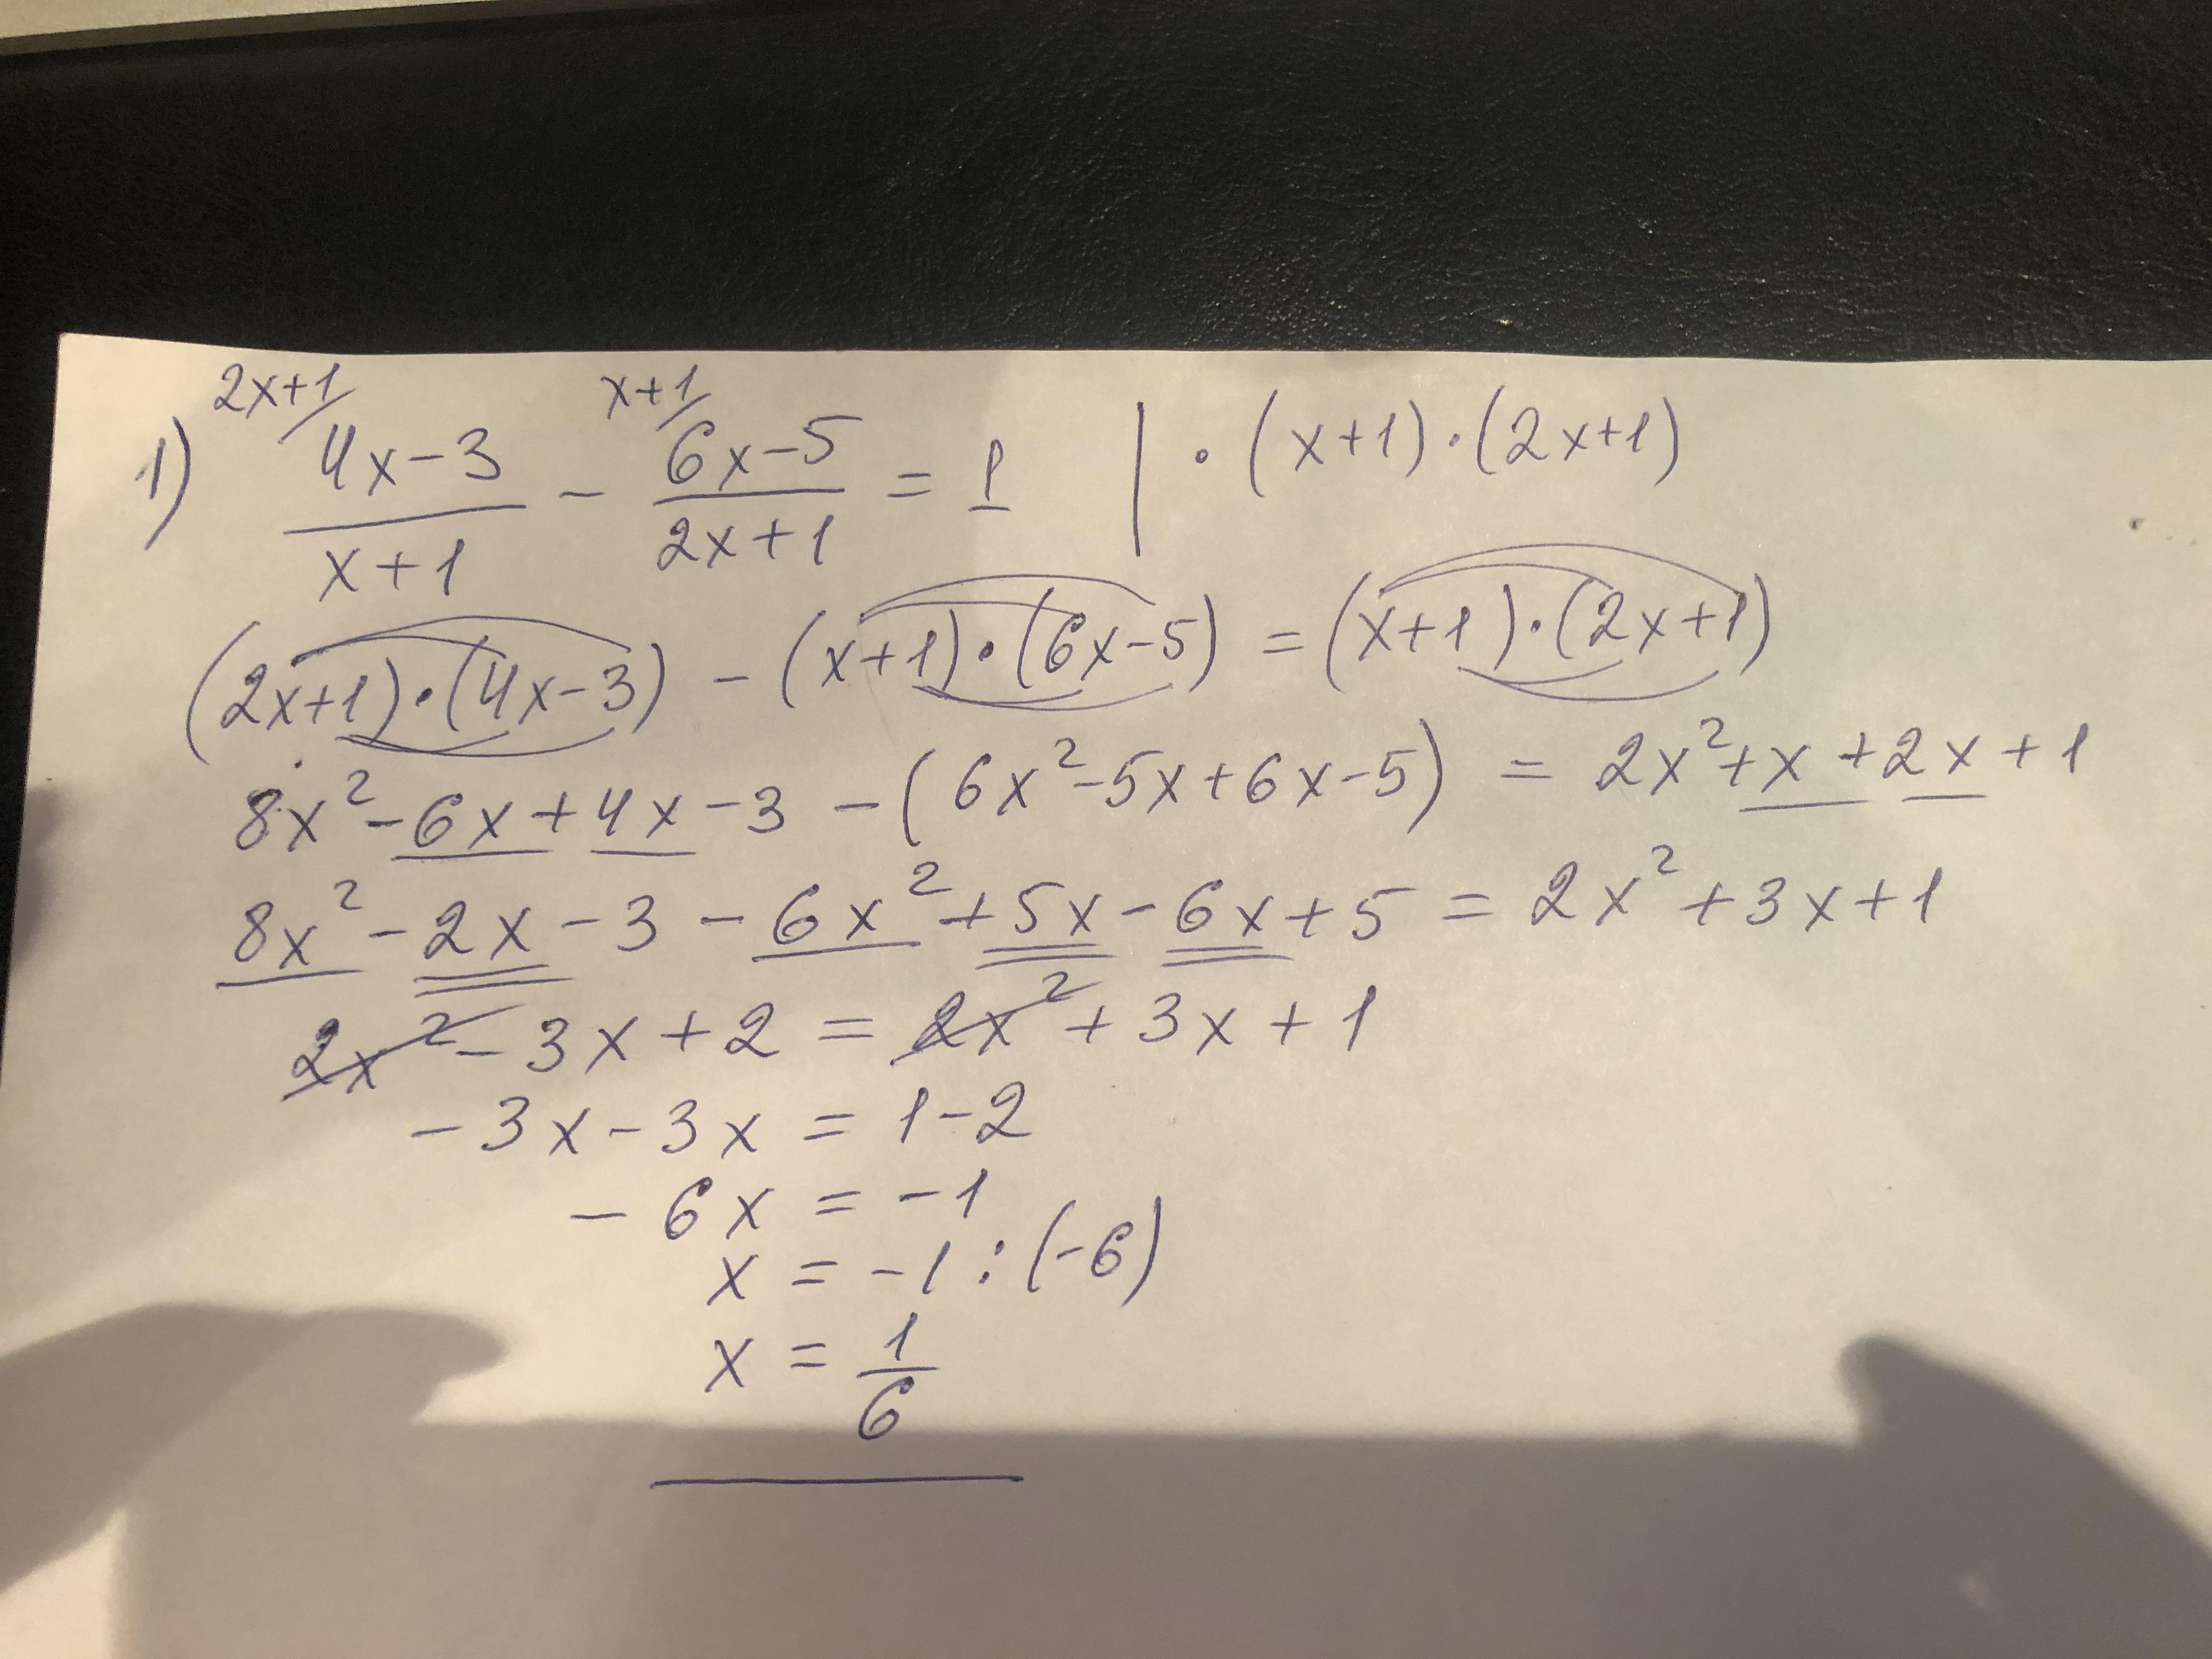 2x+1/ x+1/
1) (4x-3)/(x+1) - (6x-5)/(2x+1) = 1 | · (x+1)·(2x+1)
(2x+1)·(4x-3) - (x+1)·(6x-5) = (x+1)·(2x+1)
8x²-6x+4x-3 - (6x²-5x+6x-5) = 2x²+x+2x+1
8x²-2x-3-6x²+5x-6x+5 = 2x²+3x+1
2x²-3x+2 = 2x²+3x+1
-3x-3x = 1-2
-6x = -1
x = -1:(-6)
x = 1/6